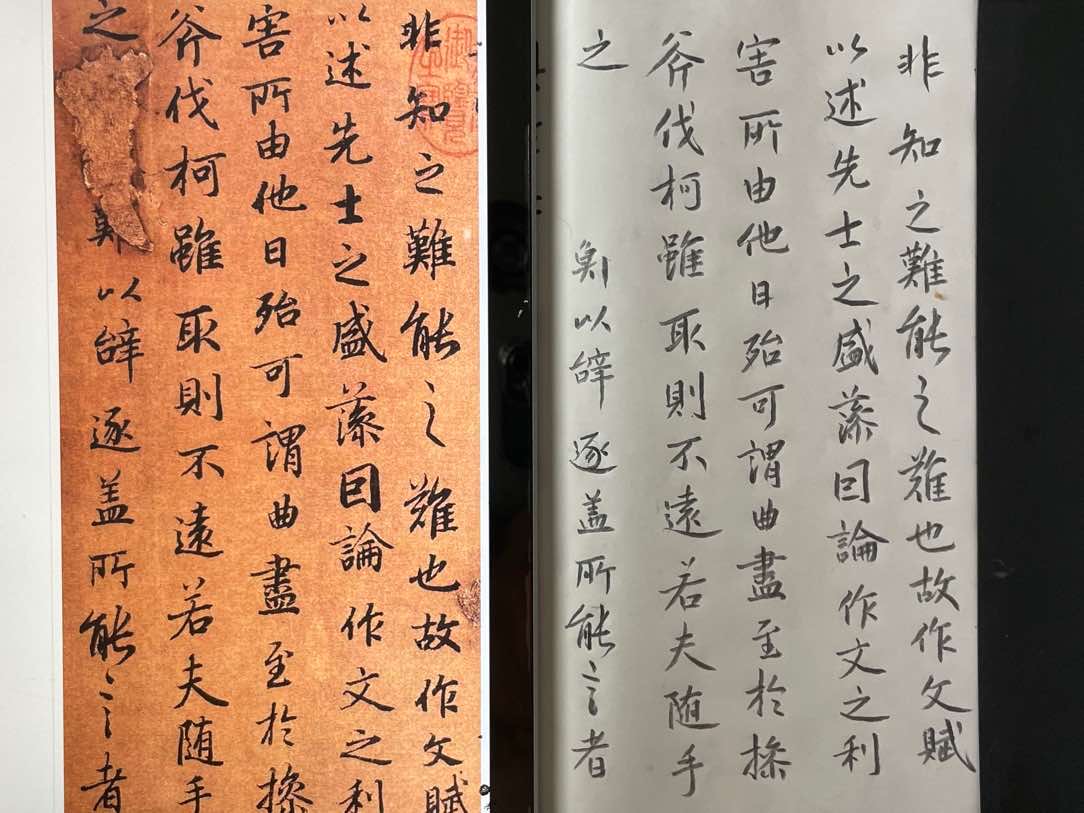 非知之難能之難也故作文賦
以述先士之盛藻因論作文之利
害所由他日殆可謂曲盡至於操
斧伐柯雖取則不遠若夫随手
之
難以辭逐盖所能言者
非知之難能之難也故作文賦
以述先士之盛藻因論作文之利
害所由他日殆可謂曲盡至於操
斧伐柯雖取則不遠若夫随手
之
以辭逐盖所能言者